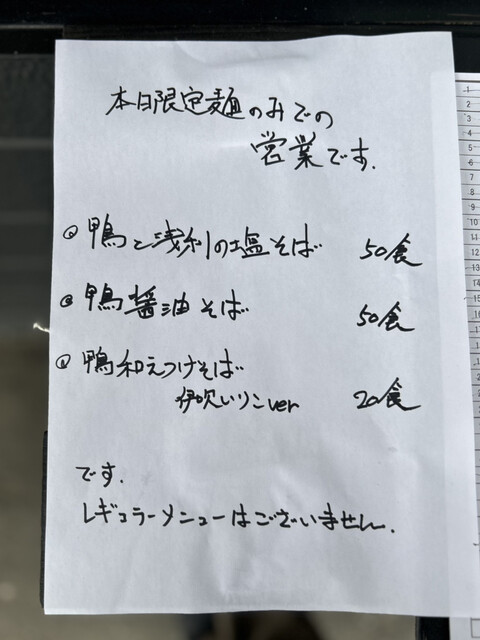 本日限定麺のみでの
営業です.
鴨と浅利の塩そば 50食
鴨醤油そば 50食
鴨和えつけそば
伊吹いりこver 20食
です.
レギュラーメニューはございません.
1
2
3
4
5
6
7
8
9
10
11
12
13
14
15
16
17